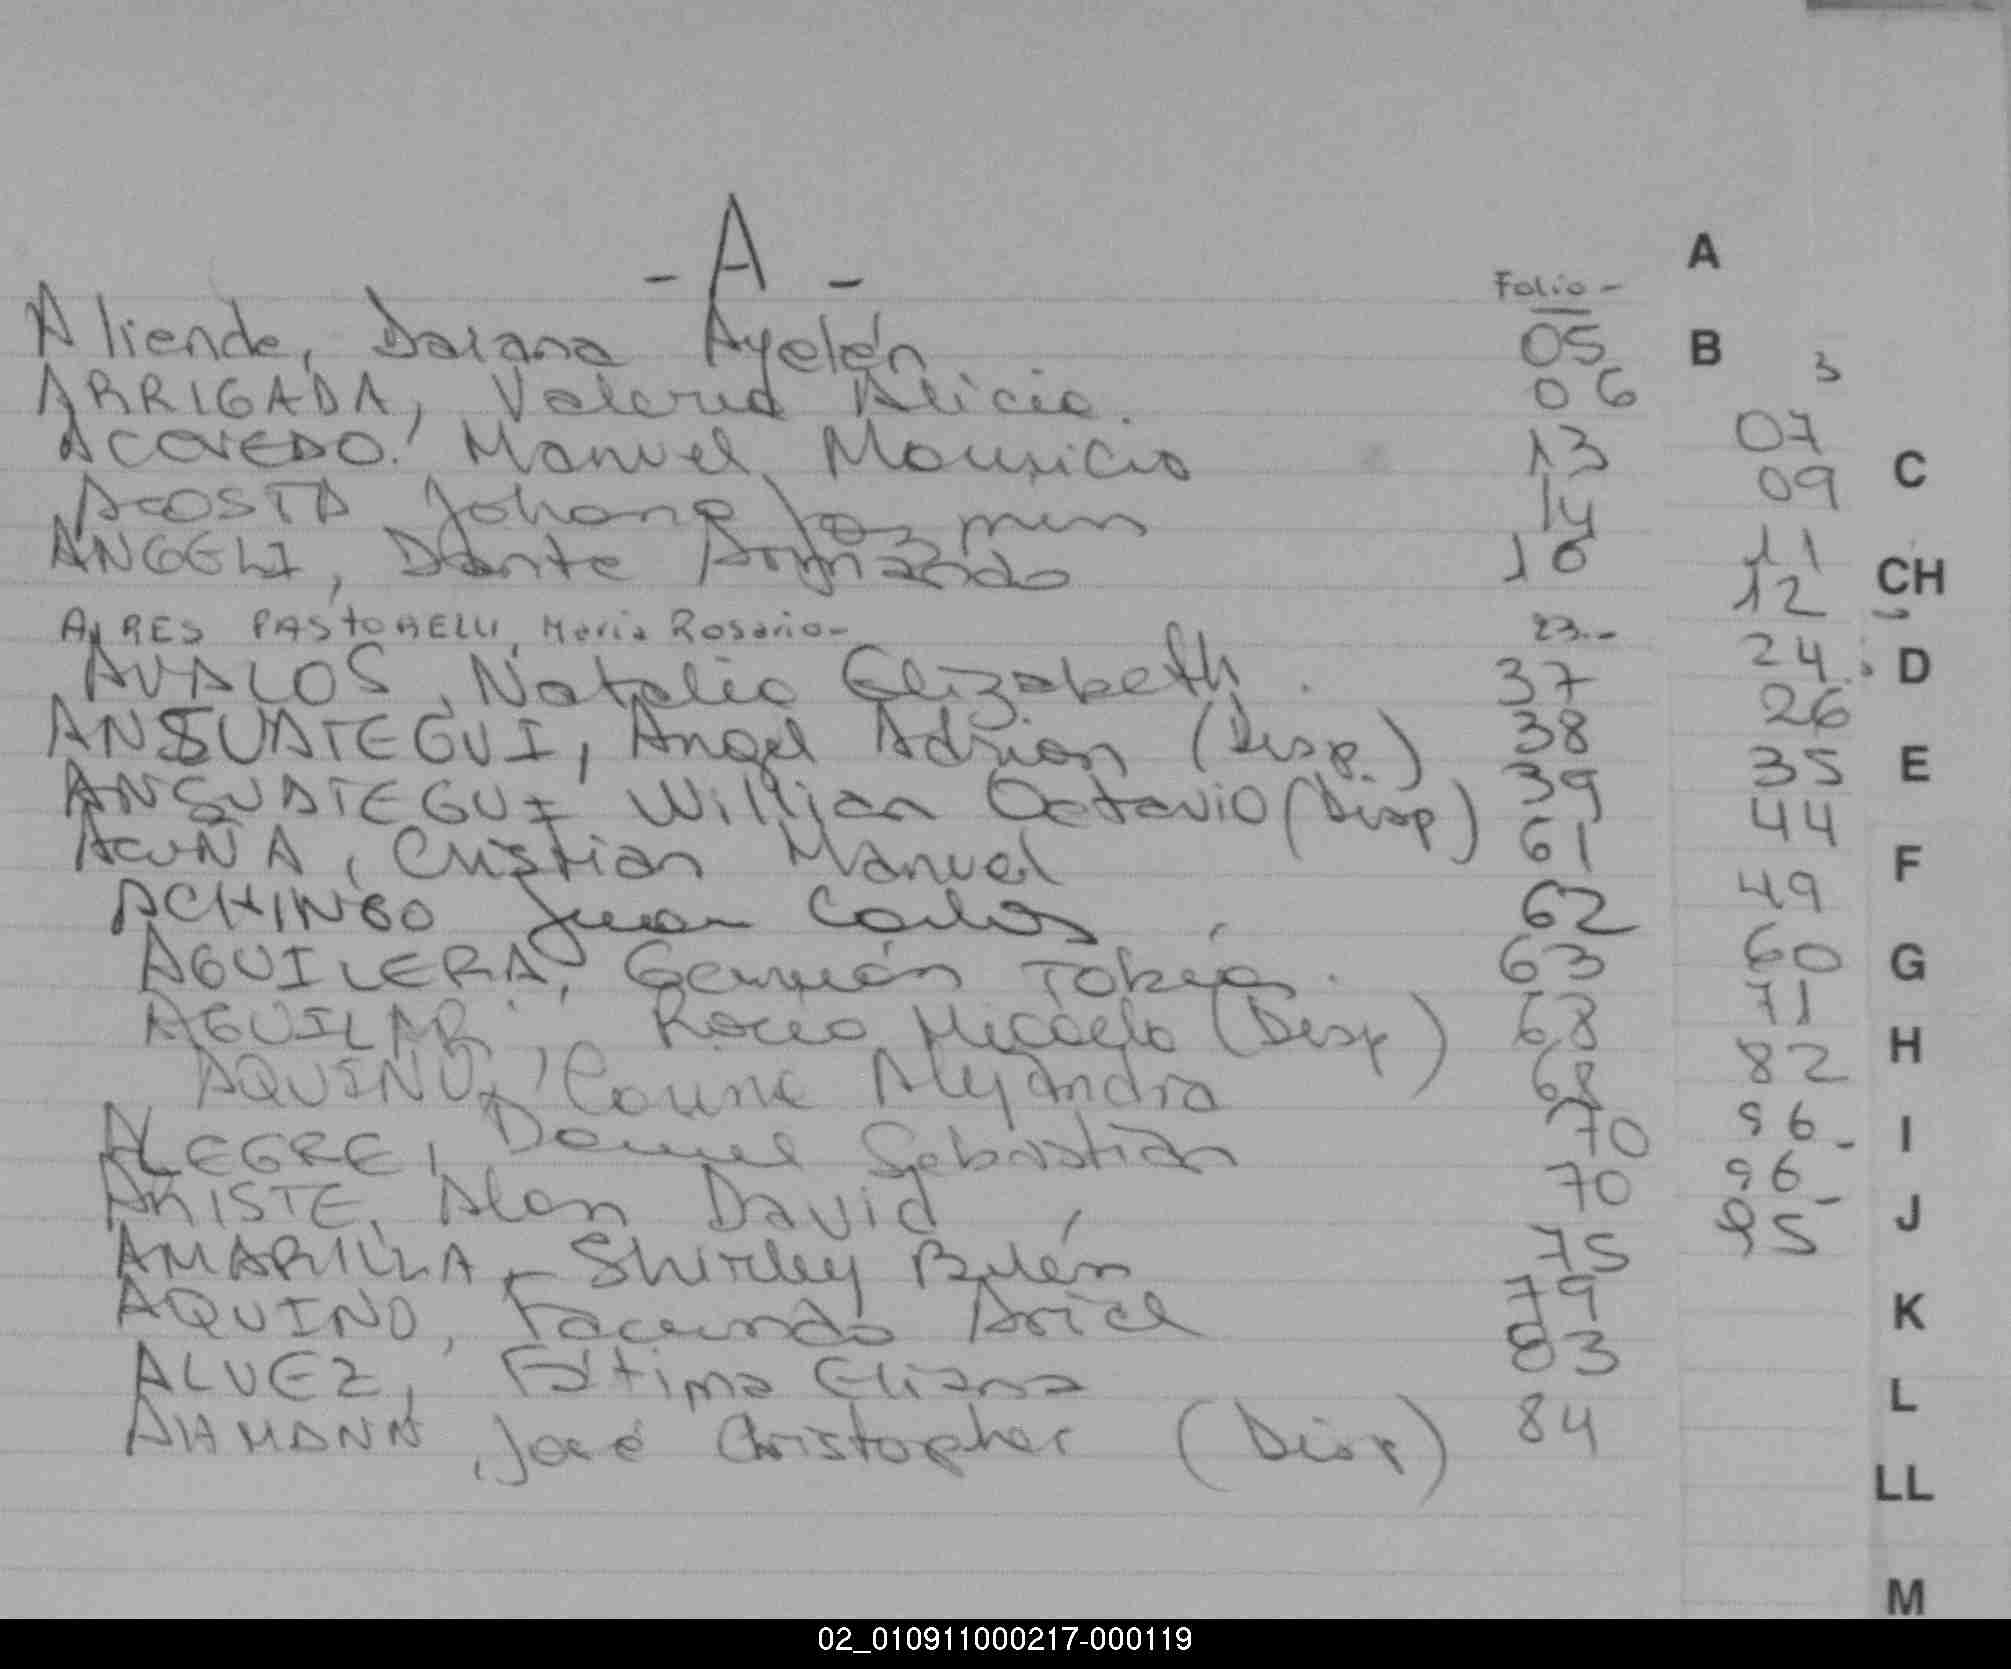 - A -
A
Folio -
Aliende, Daiana Ayelén 05
B
3
ARRIGADA, Valeria Alicia. 06
07
ACOVEDO. Manuel Mauricio 13
C
09
ACOSTA Johana Jazmin 14
ANGELI, Dante Armando 10
11
CH
12
AIRES PASTORELLI, Maria Rosario- 23.-
24
D
AVALOS, Natalia Elizabeth. 37
26
ANSUATEGUI, Angel Adrian (Disp.) 38
35
E
ANSUATEGUI Willian Octavio (Disp) 39
44
ACUÑA, Cristian Manuel 61
F
49
ACHINGO Juan Carlos 62
60
G
AGUILERA, Germán Tobías. 63
71
AGUILAR, Rocio Micaela (Disp) 68
H
82
AQUINO, Corina Alejandra 68
96-
I
ALEGRE, Daniel Sebastián 70
96-
ARISTE, Alan David 70
J
95
AMARILLA, Shirley Belén 75
K
AQUINO, Facundo Ariel 79
ALVEZ, Fátima Eliana 83
L
AHMANN, José Christopher (Disp) 84
LL
M
02_010911000217-000119